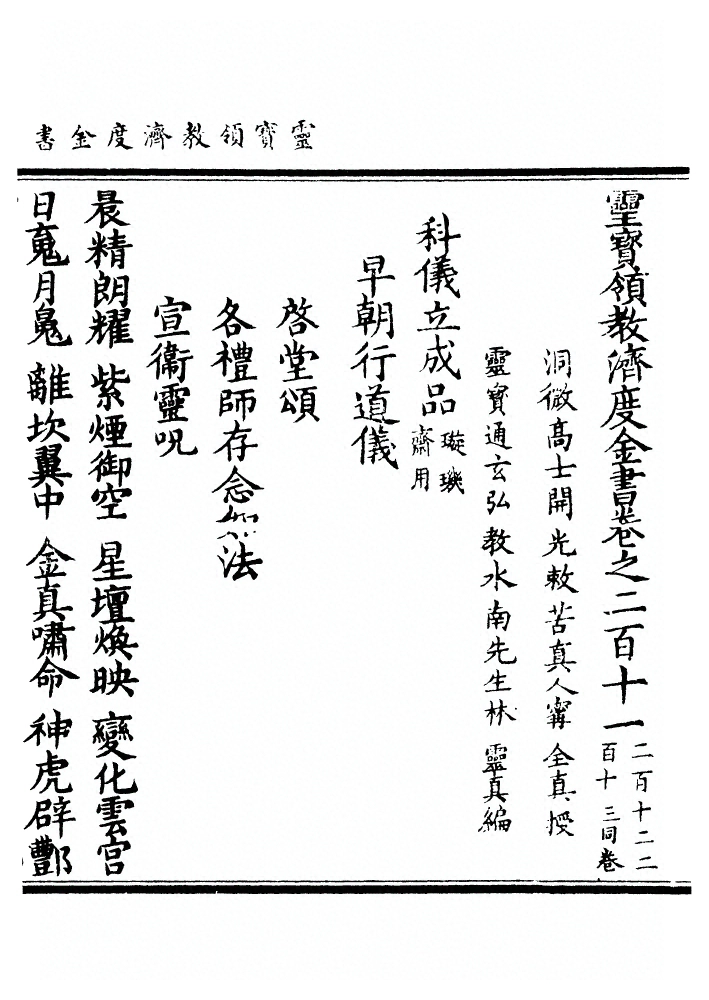 靈寶領教濟度金書
靈寶領教濟度金書卷之二百十一
二百十二二
百十三同卷
洞微高士開光敕苦真人甯全真授
靈寶通玄弘教水南先生林靈真編
科儀立成品
璇璣
齋用
早朝行道儀
啓堂頌
各禮師存念如法
宣衞靈呪
晨精朗耀 紫煙御空 星壇煥映 變化雲宮
日䰟月魄 離坎翼中 金真嘯命 神虎辟酆